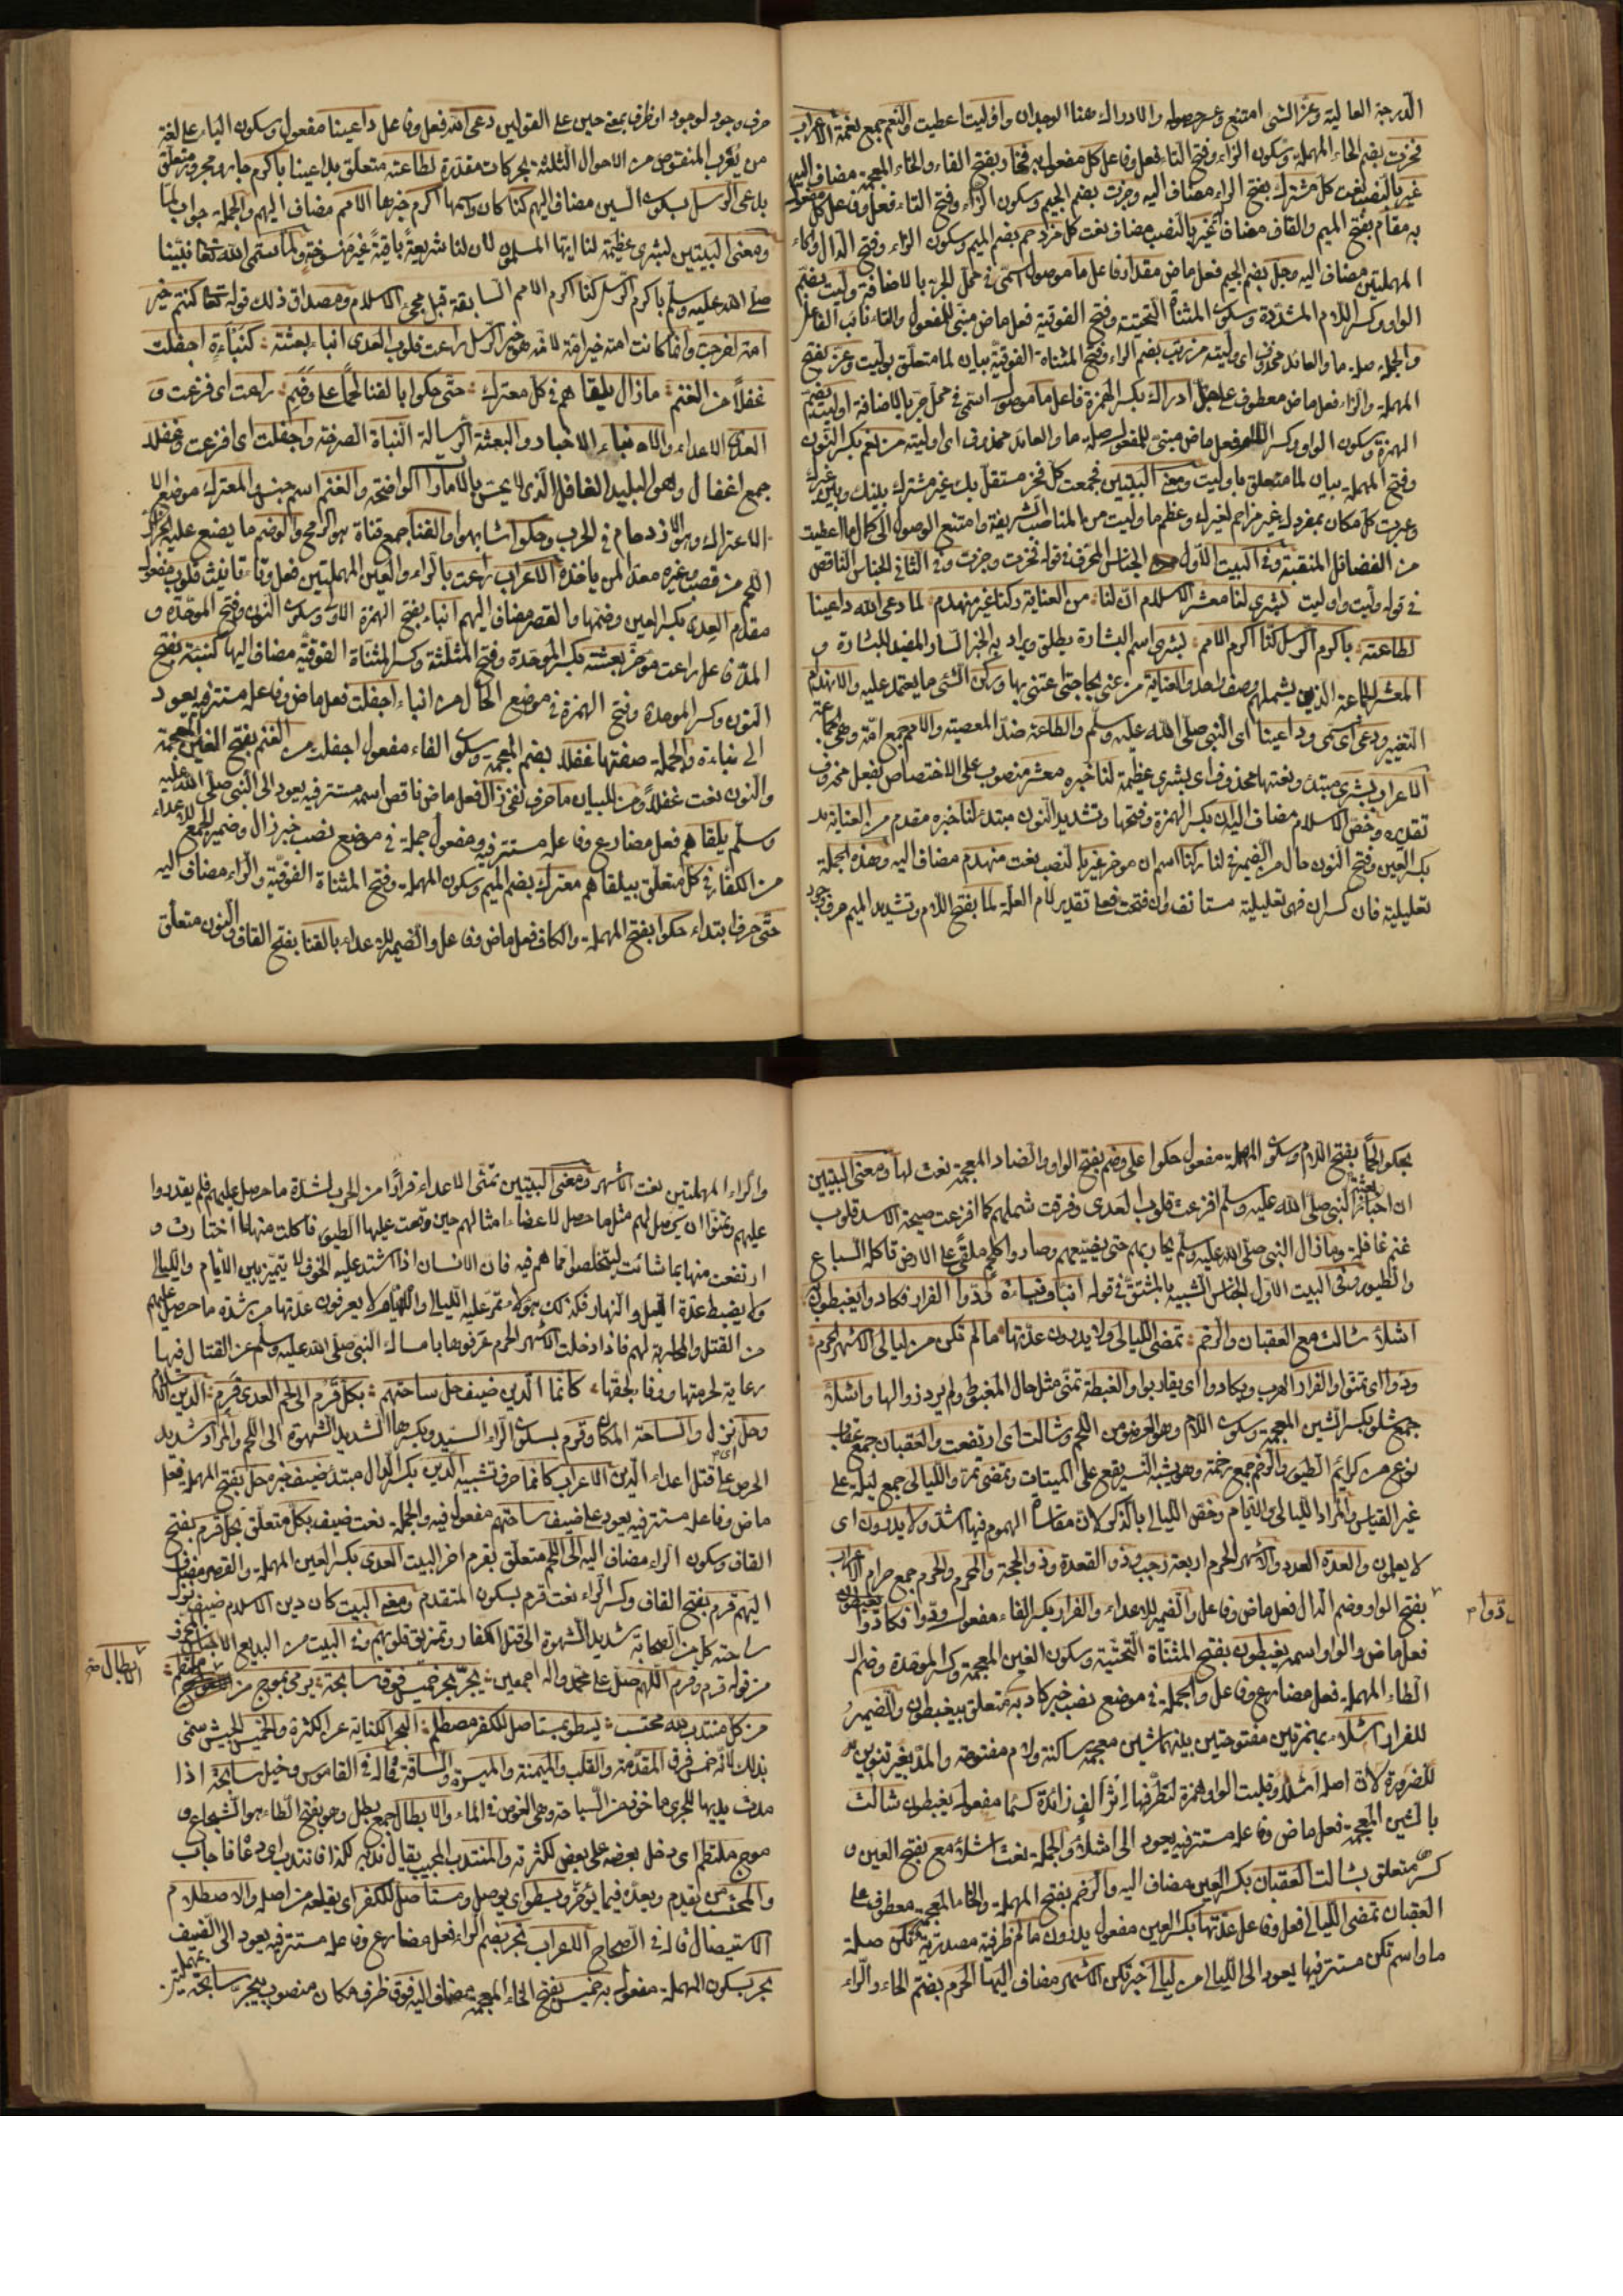 الدرجة العالية وعز الشئ امتنع وعز حصوله والادراك هنا الوجدان واوليت اعطيت والنعم جمع نعمة الاعراب
فحزت بضم الحاء المهملة وسكون الزاء وفتح التاء فعل وفاعل كل مفعول به فخار بفتح الفاء والخاء المعجمة مضاف اليه
غير بالنصب نعت كل مشترك بفتح الراء مضاف اليه وجزت بضم الجيم وسكون الزاء وفتح التاء فعل وفاعل كل مفعول
به مقام بفتح الميم والقاف مضاف غير بالنصب مضاف نعت كل مزدحم بضم الميم وسكون الزاء وفتح الدال والحاء
المهملتين مضاف اليه وجل بضم الجيم فعل ماض مقدار فاعل ما موصول اسمى فى محل الجر بالاضافة وليت بضم
الواو وكسر اللام المشددة وسكون المثناة التحتية وفتح الفوقية فعل ماض مبنى للمفعول والتاء نائب الفاعل
والجملة صلة ما والعائد محذوف اى وليته من رتب بضم الراء وفتح المثناة الفوقية بيان لما متعلق بوليت وعز بفتح
المهملة والزاء فعل ماض معطوف على جل ادراك بكسر الهمزة فاعل ما موصول اسمى فى محل جر بالاضافة اوليت بضم
الهمزة وسكون الواو وكسر اللام فعل ماض مبنى للمفعول صلة ما والعائد محذوف اى اوليته من نعم بكسر النون
وفتح المهملة بيان لما متعلق باوليت ومعنى البيتين فجمعت كل فخر مستقل بك غير مشترك بينك وبين غيرك
وعبرت كل مكان بمفردك غير مزاحم لغيرك وعظم ما وليت من المناصب الشريفة وامتنع الوصول الى كمال ما اعطيت
من الفضائل المنقبة وفى البيت الاول الجناس المحرف فى قوله فحزت وجزت وفى الثانى الجناس الناقص
فى قوله وليت واوليت بشرى لنا معشر الاسلام ان لنا من العناية ركنا غير منهدم لما دعى الله داعينا
لطاعته باكرم الرسل كنا اكرم الامم بشرى اسم البشارة يطلق ويراد به الخبر السار المفيد للبشارة و
المعشر الجماعة الذين يشملهم وصف واحد والعناية من عنى بحاجتى اعتنى بها وركن الشئ ما يعتمد عليه والانهدام
التغيير ودعى اى سمى وداعينا اى النبى صلى الله عليه وسلم والطاعة ضد المعصية والامم جمع امة وهى الجماعة
الاعراب بشرى مبتدء ونعتها محذوف اى بشرى عظيمة لنا خبره معشر منصوب على الاختصاص بفعل محذوف
تقديره وخص الاسلام مضاف اليه ان بكسر الهمزة وفتحها وتشديد النون مبتدء لنا خبره مقدم من العناية
بكسر العين وفتح النون حال من الضمير فى لنا ركنا اسم ان موخر غير بالنصب نعت منهدم مضاف اليه وهذه الجملة
تعليلية فان كسر ان فهى تعليلية مستانفة وان فتحت فعلى تقدير لام العلة لما بفتح اللام وتشديد الميم حرف وجود
حرف وجود لوجود او ظرف بمعنى حين على القولين دعى الله فعل وفاعل داعينا مفعول وسكون الياء على لغة
من يُعرب المنقوص من الاحوال الثلثة بحركات مقدرة لطاعته متعلق بداعينا باكرم جار ومجرور متعلق
بدعى الرسل بسكون السين مضاف اليهم كنا كان واسمها اكرم خبرها الامم مضاف اليهم والجملة جواب لما
ومعنى البيتين لبشرى عظيمة لنا ايها المسلمون لان لنا شريعةً باقيةً غير منسوخة ولما سمى الله تعالى نبينا
صلى الله عليه وسلم باكرم الرسل كنا اكرم الامم السابقة قبل مجئ الاسلام ومصداق ذلك قوله تعالى كنتم خير
امة اخرجت وانما كانت امته خير امة لانه هو خير الرسل راعت قلوب العدى انباء بعثته كنباءة اجفلت
غفلاً من الغنم ما زال يلقاهم فى كل معترك حتى حكوا بالقنا لحماً على وضم راعت اى فزعت و
العدى الاعداء والانباء الاخبار والبعثة الرسالة النباة الصرخة واجفلت اى افزعت وغفلا
جمع اغفال وهو البليد الغافل الذى لا يحس بالامارات الواضحة والغنم اسم جنس والمعترك موضع
الاعتراك وهو الازدحام فى الحرب وحكوا شابهوا والقنا جمع قناة هو الرمح والوضم ما يضع عليه الجزار
اللحم من قصب وغيره معدا لمن ياخذه الاعراب راعت بالراء والعين المهملتين فعل وتاء تانيث قلوب مفعول
مقدم العدى بكسر العين وضمها والقصر مضاف اليهم انباء بفتح الهمزة الاولى وسكون النون وفتح الموحدة و
المد فاعل راعت موخر بعثته بكسر الموحدة وفتح المثلثة وكسر المثناة الفوقية مضاف اليها كنبئة بفتح
النون وكسر الموحدة وفتح الهمزة فى موضع الحال من انباء اجفلت فعل ماض وفاعله مستتر فيه يعود
الى نباءة والجملة صفتها غفلا بضم المعجمة وسكون الفاء مفعول اجفلت من الغنم بفتح الغين المعجمة
والنون نعت غفلاً ومن للبيان ما حرف نفى زال فعل ماض ناقص اسمه مستتر فيه يعود الى النبى صلى الله عليه
وسلم يلقاهم فعل مضارع وفاعله مستتر فيه ومفعول جملة فى موضع نصب خبر زال وضمير الجمع للاعداء
من الكفار فى كل متعلق بيلقاهم معترك بضم الميم وسكون المهملة وفتح المثناة الفوقية والراء مضاف اليه
حتى حرف ابتداء حكوا بفتح المهملة والكاف فعل ماض وفاعل والضمير للاعداء بالقنا بفتح القاف والنون متعلق
بحكوا لحماً بفتح اللام وسكون المهملة مفعول حكوا على وضم بفتح الواو والضاد المعجمة نعت لها ومعنى البيتين
ان اخبار بعثة النبى صلى الله عليه وسلم افزعت قلوب العدى وفرقت شملهم كما افزعت صيحة الاسد قلوب
غنم غافلة وما زال النبى صلى الله عليه وسلم يحاربهم حتى وصاروا كلحم ملقى على الارض تاكله السباع
والطيور وفى البيت الاول الجناس الشبيه بالمشتق فى قوله انباء ونباءة ودوا الفرار فكادوا يغبطون به
اشلاء شالت مع العقبان والرخم تمضى الليالى ولا يدرون عدتها ما لم تكن من ليالى الاشهر الحرم
ودوا اى تمنوا والفرار الهرب ويكادوا اى يقاربوا والغبطة تمنى مثل حال المغبوط ولم يرد زوالها واشلاء
جمع شلو بكسر الشين المعجمة وسكون اللام وهو العضو من اللحم وشالت اى ارتفعت والعقبان جمع عقاب
نوع من كرائم الطيور والرخم جمع رخمة وهو يشبه النسر يقع على الميتات وتمضى تمر والليالى جمع ليلة على
غير القياس والمراد الليالى والايام وخص الليالى بالذكر لان مقاساة الهموم فيها اشد ولا يدرون اى
لا يعلمون والعدة العدد والاشهر الحرم اربعة رجب وذو القعدة وذو الحجة والمحرم والحرم جمع حرام الاعراب
ودوا
بفتح الواو وضم الدال فعل ماض وفاعل والضمير للاعداء والفرار بكسر الفاء مفعول ودوا فكادوا يغبطون
فعل ماض والواو اسمه يغبطون بفتح المثناة التحتية وسكون الغين المعجمة وكسر الموحدة وضم
الطاء المهملة فعل مضارع وفاعل والجملة فى موضع نصب خبر كاد به متعلق بيغبطون والضمير
للفرار اشلاء بهمزتين مفتوحتين بينهما شين معجمة ساكنة ولام مفتوحة والمد بغير تنوين
للضرورة لان اصله اشلاو قلبت الواو همزة لتطرفها اثر الف زائدة كسما مفعول يغبطون شالت
بالشين المعجمة فعل ماض وفاعله مستتر فيه يعود الى اشلاء والجملة نعت اشلاء مع بفتح العين و
كسرها متعلق بشالت العقبان بكسر العين مضاف اليه والرخم بفتح المهملة والخاء المعجمة معطوف على
العقبان تمضى الليالى فعل وفاعل عدتها بكسر العين مفعول يدرون ما لم ظرفية مصدرية تكن صلة
ما واسم تكن مستتر فيها يعود الى الليالى من ليالى خبر تكن الاشهر مضاف اليها الحرم بضم الحاء والراء
والراء المهملتين نعت الاشهر ومعنى البيتين تمنى الاعداء فراراً من الحرب لشدة ما حصل عليهم فلم يقدروا
عليهم وتمنوا ان يحصل لهم مثل ما حصل لاعضاء امثالهم حين وقعت عليها الطيور فاكلت منها ما اختارت و
ارتفعت منها بما شائت ليتخلصوا مما هم فيه فان الانسان اذا اشتد عليه الخوف لا يتميز بين الايام والليالى
ولا يضبط عدة الليل والنهار فكذلك هؤلاء تمر عليه الليالى والايام لا يعرفون عدتها من شدة ما حصل عليهم
من القتل والمحاربة لهم فاذا دخلت الاشهر الحرم عرفوها بامساك النبى صلى الله عليه وسلم عن القتال فيها
رعاية لحرمتها ووفاء لحقها كانما الدين ضيف حل ساحتهم بكل قرم الى لحم العدى قرم الدين الاسلام
وحل نزل والساحة المكان وقرم بسكون الراء السيد وبكسرها الشديد الشهوة الى اللحم والمراد شديد
الحرص على قتل اعداء الدين الاعراب كانما حرف تشبيه الدين بكسر الدال مبتدء ضيف خبره حل بفتح المهملة فعل
ماض وفاعله مستتر فيه يعود على ضيف ساحتهم مفعول فيه والجملة نعت ضيف بكل متعلق بحل قرم بفتح
القاف وسكون الراء مضاف اليه الى لحم متعلق بقرم اخر البيت العدى بكسر العين المهملة والقصر مضاف
اليهم قرم بفتح القاف وكسر الراء نعت قرم بسكون المتقدم ومعنى البيت كان دين الاسلام ضيف نزل
ساحة كل من الصحابة شديد الشهوة الى قتل الكفار وتمزيق قلوبهم وفى البيت من البديع الجناس المحرف
من قوله قرم وقرم اللهم صل على محمد واله اجمعين يجر بحر خميس فوق سابحة يرمى بموج من ملتطم
الابطال صح
من كل منتدب لله محتسب يسطو بمستاصل للكفر مصطلم البحر الكناية عن الكثرة والخميس الجيش سمى
بذلك لانه خمس فرق المقدمة والقلب والميمنة والميسرة والساقة قاله فى القاموس وخيل سابحة اذا
مدت يديها للجرى ماخوذ من السباحة وهى العوم فى الماء والابطال جمع بطل وهو بفتح الطاء هو الشجاع و
موج ملتطم اى دخل بعضه على بعض لكثرته والمنتدب المجيب يقال ندبه لكذا فانتدب اى دعاه فاجاب
والمحتسب من يقدم ويعده فيما يوخر ويسطو اى يوصل ومستاصل للكفر اى يقلعه من اصله والاصطلام
الاستيصال قاله فى الصحاح الاعراب يجر بضم الراء فعل مضارع وفاعله مستتر فيه يعود الى الضيف
بحر بسكون المهملة مفعول به خميس بفتح الخاء المعجمة مضاف اليه فوق ظرف مكان منصوب بيجر سابحة بمهملتين